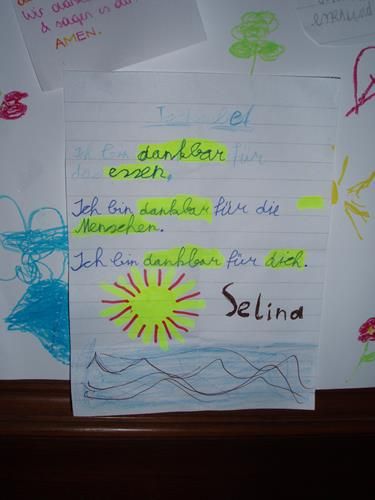 Wir dank
& sagen is da
AMEN.
Ich bin dankbar für
das essen.
Ich bin dankbar für die
Menschen.
Ich bin dankbar für dich.
Selina